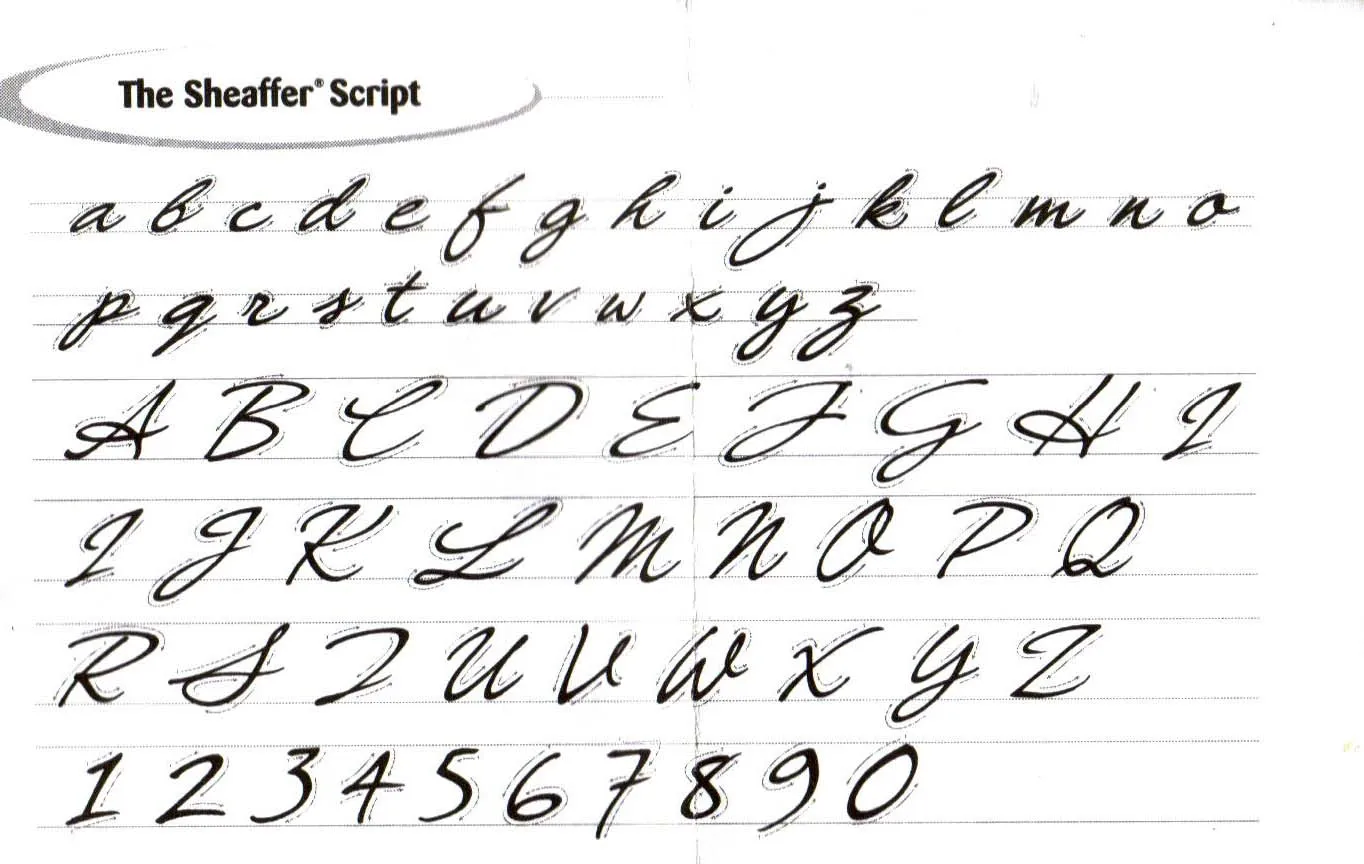 The Sheaffer® Script
a b c d e f g h i j k l m n o
p q r s t u v w x y z
A B C D E F G H I
I J K L M N O P Q
R S T U V W X Y Z
1 2 3 4 5 6 7 8 9 0